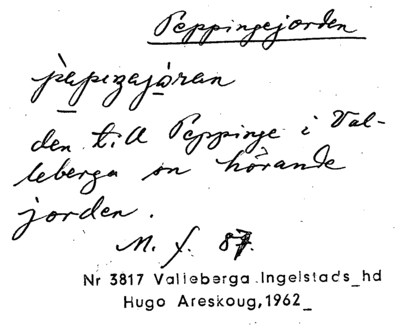 Peppingejorden
pæpeŋajoran
den till Peppinge i Val-
leberga sn hörande
jorden.
M. f. 87.
Nr 3817 Valleberga Ingelstads hd
Hugo Areskoug, 1962